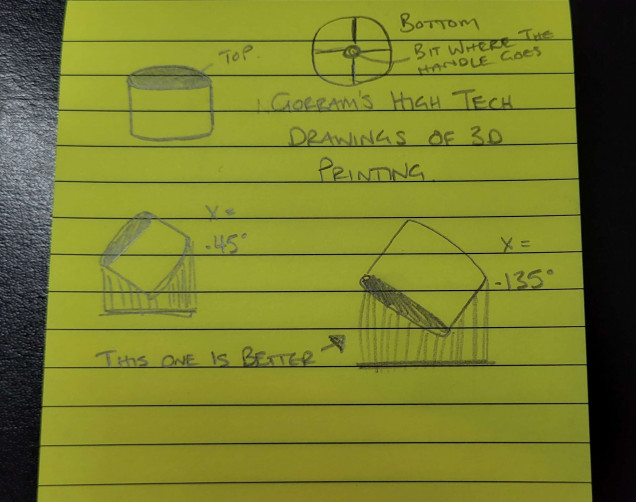 TOP.
BOTTOM
BIT WHERE THE
HANDLE GOES
GORRAM'S HIGH TECH
DRAWINGS OF 3D
PRINTING.
X =
-45°
X =
-135°
THIS ONE IS BETTER